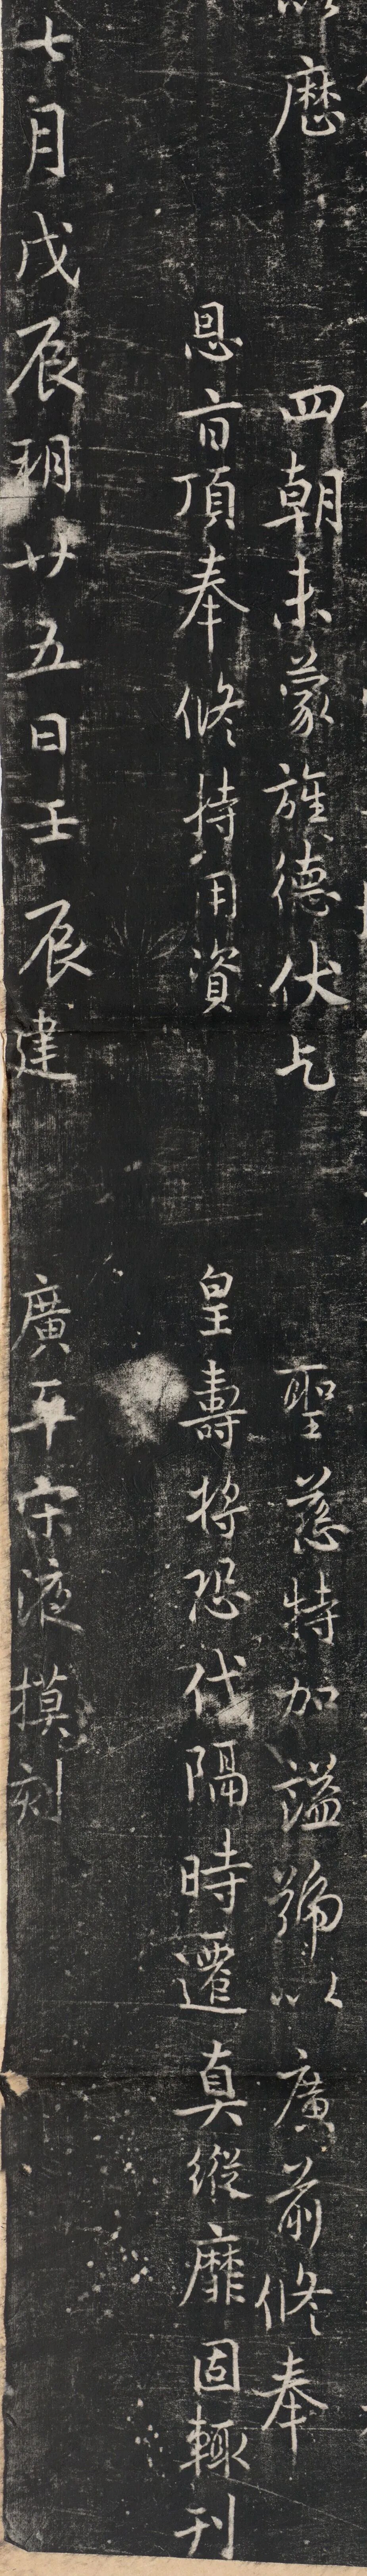 以歷 四朝未蒙旌德伏乞 聖慈特加謚號以廣前修奉
恩旨頂奉修持用資 皇壽將恐代隔時遷真縱靡固輒刊
七月戊辰朔廿五日壬辰建 廣平宋液摸刻